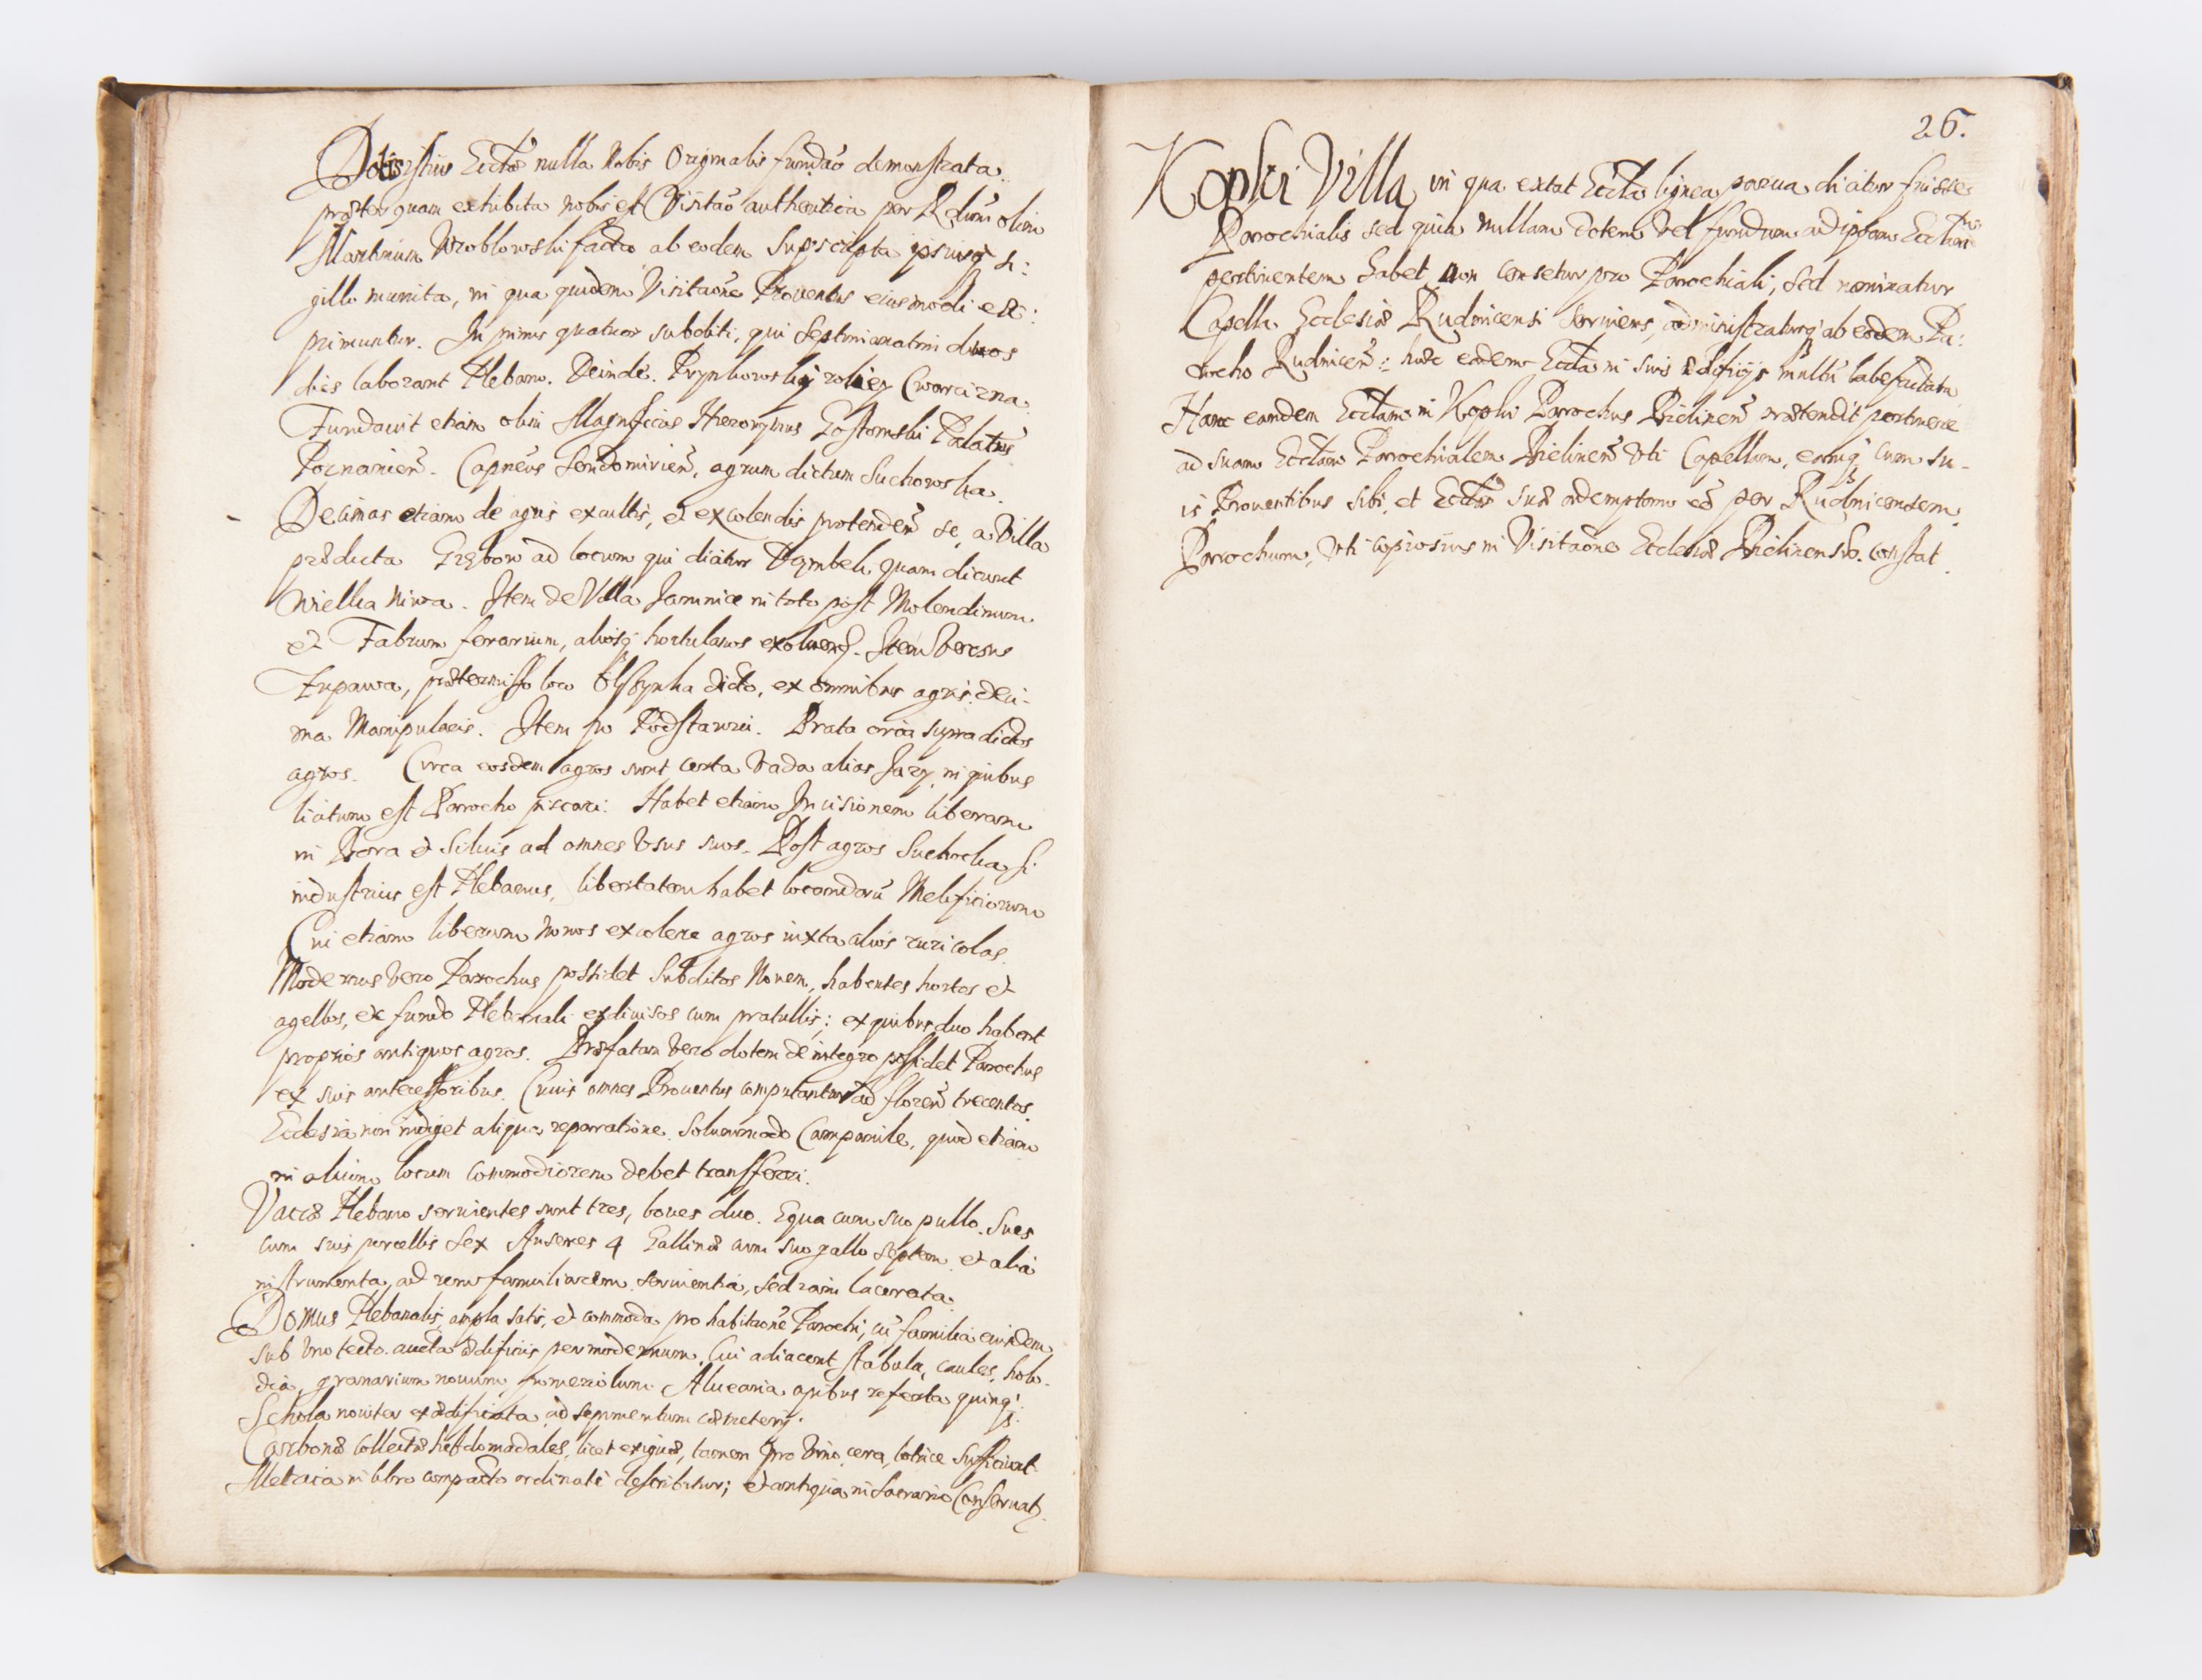 Dotis istius Ecctae nulla Nobis Originalis fundaō demonstrata.
praeterquam exhibita nobis est Visitaō authentica per Rdum olim
Martinum Wroblowski facta ab eodem Supscripta ipsiusq; si:
gillo munita, in qua quidem Visitaōne Proventus eiusmodi ex:
primuntur. In primis quatuor subditi, qui Septimanatim duos
dies laborant Plebano. Deinde. Prynkowskiÿ roliey Cwarcizna.
Fundavit etiam olim Magnificus Hieronymus Gostomski Palatnus
Poznanien. Capneus Sendomirien, agrum dictum Suchowska.
Decimas etiam de agris excultis, et excolendis protenden se, a Villa
praedicta Grębow ad locum qui dicitur Dymbek, quam dicunt
Wielka Niwa. Item de Villa Jamnica in toto post Molendinum
et Fabrum ferarium, aliosq; hortulanos exoluen. Item Versus
Zupawa, praetermisso loco Olszynka dicto, ex omnibus agris deci-
ma Manipularis. Item po Podstawin. Prata circa supradictos
agros. Circa eosdem agros sunt certa Vada alias Jazy, in quibus
licitum est Parocho piscari. Habet etiam Incisionem liberam
in Bora et Siluis ad omnes Vsus suos. Post agros Suchocka si
industrius est Plebanus, libertatem habet locandorū Melificiorum
Cui etiam liberum Nouos excolere agros iuxta alios ruricolas.
Modernus Vero Parochus possidet Subditos Nouem, habentes hortos et
agellos, ex fundo Plebanali exdiuisos cum pratullis; ex quibus duo habent
proprios antiquos agros. Praefatam Vero dotem de integro possidet Parochus
ex suis antecessoribus. Cuius omnes Prouentus computantur ad floren trecentos.
Ecclesia non indiget aliqua reparatione. Solummodo Campanile, quod etiam
in alium locum Commodiorem debet transferri.
Vaccae Plebano seruientes sunt tres, boues duo. Equa cum suo pullo. Sues
cum suis porcellis Sex Anseres 4 Gallinae cum suo gallo septem et alia
instrumenta ad rem familiarem seruientia, sed iam lacerata.
Domus Plebanalis, ampla satis, et commoda pro habitaōne Parochi, cū familia eiusdem
sub vno tecto. aucta aedificiis per modernum. Cui adiacent stabula, caules, hobo-
dia, granarium nouum Alucaria apibus referta quinq;
Schola noviter exaedificata ad sepimentum caemeterij.
Carbonae Collectae hebdomadales, licet exiguae, tamen pro Vino, cera, lotrice Sufficiunt
Metrica in libro compacto ordinatè describitur; et antiqua in Sacrario Conseruatr.
26.
Kopki Villa, in qua extat Eccta lignea parua dicitur fuisse
Parochialis sed quia nullam dotem Vel fundum ad ipsam Ecctam
pertinentem habet, non censetur pro Parochiali, sed nominatur
Capella Ecclesiae Rudnicensi Seruiens, administraturq; ab eodem Pa:
rocho Rudnicen: haec eadem Eccta in suis aedificijs multū labefactata
Hanc eamdem Ecctam in Kopki Parochus Bielinen praetendit pertinere
ad suam Ecctam Parochialem Bielinen Vti Capellam, eamq; cum su-
is Prouentibus sibi, et Ecctae suae ademptam eē per Rudnicensem.
Parochum, Vti copiosius in Visitaōne Ecclesiae Bielinensis. constat.